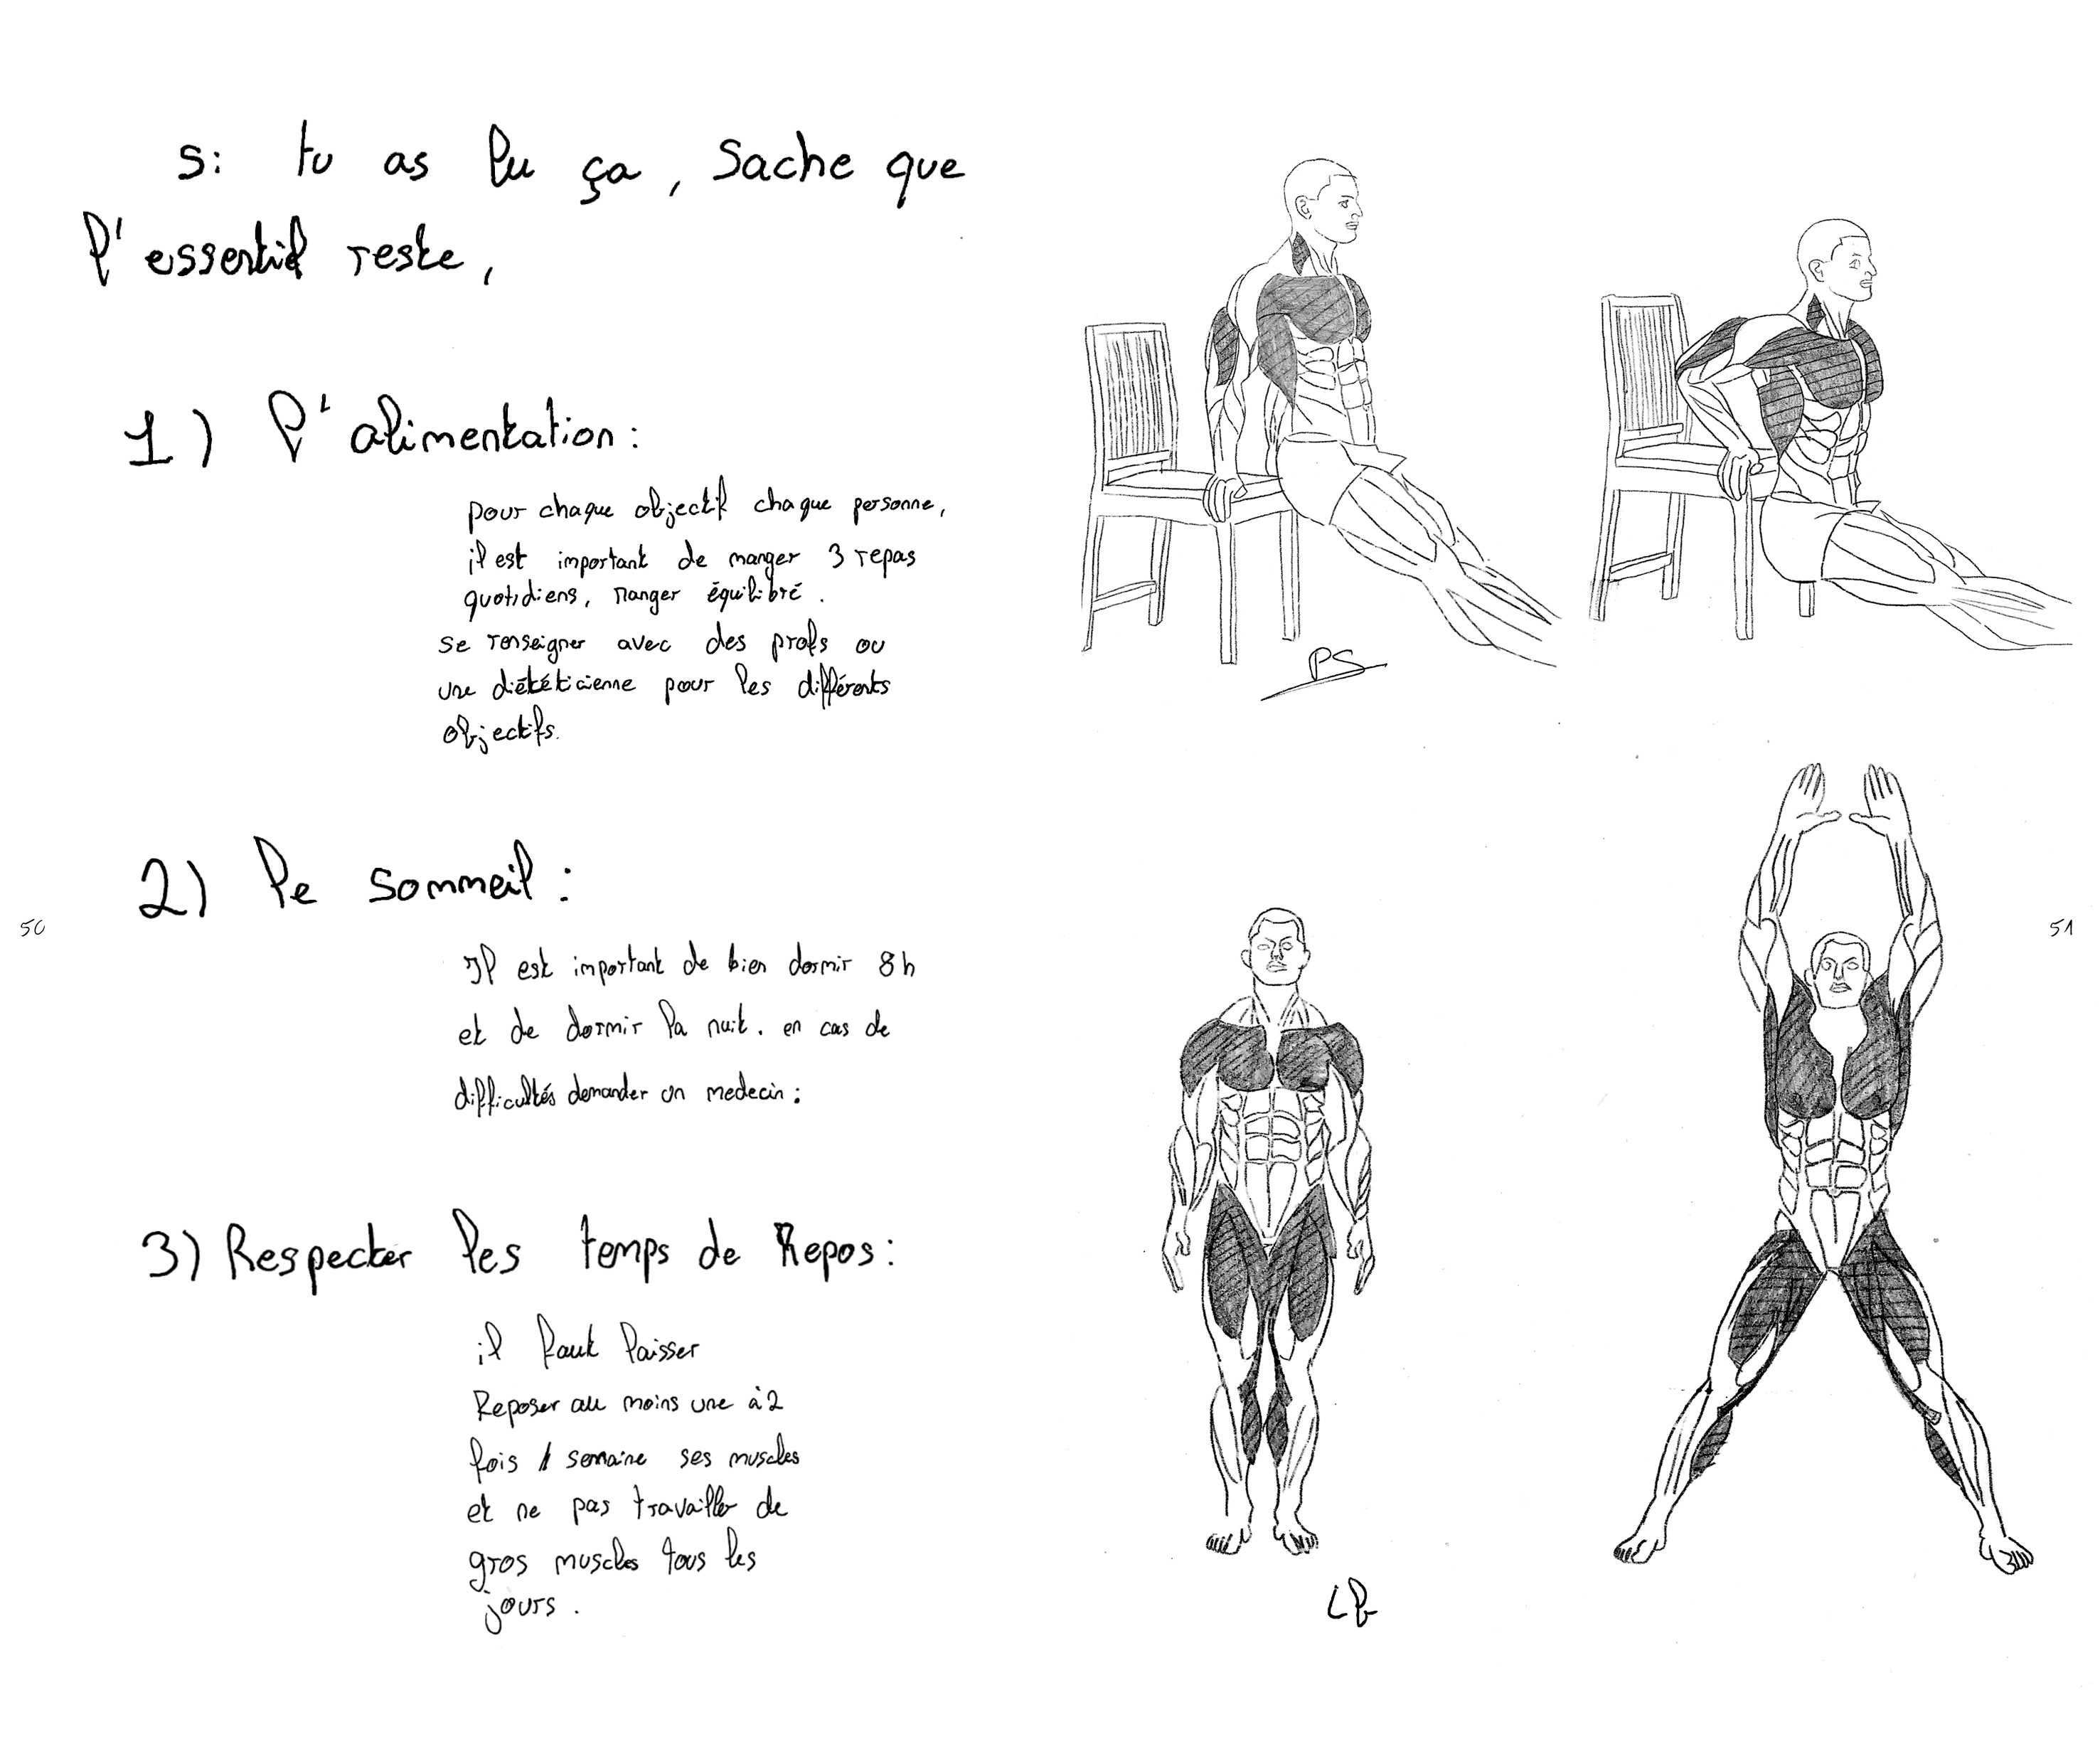 si tu as lu ça, sache que
l'essentiel reste,
1) l'alimentation :
pour chaque objectif chaque personne,
il est important de manger 3 repas
quotidiens, manger équilibré.
se renseigner avec des profs ou
une diététicienne pour les différents
objectifs.
2) le sommeil :
Il est important de bien dormir 8h
et de dormir la nuit. en cas de
difficultés demander un medecin :
3) Respecter les temps de Repos :
il faut laisser
Reposer au moins une à 2
fois / semaine ses muscles
et ne pas travailler de
gros muscles tous les
jours.
50
PS
51